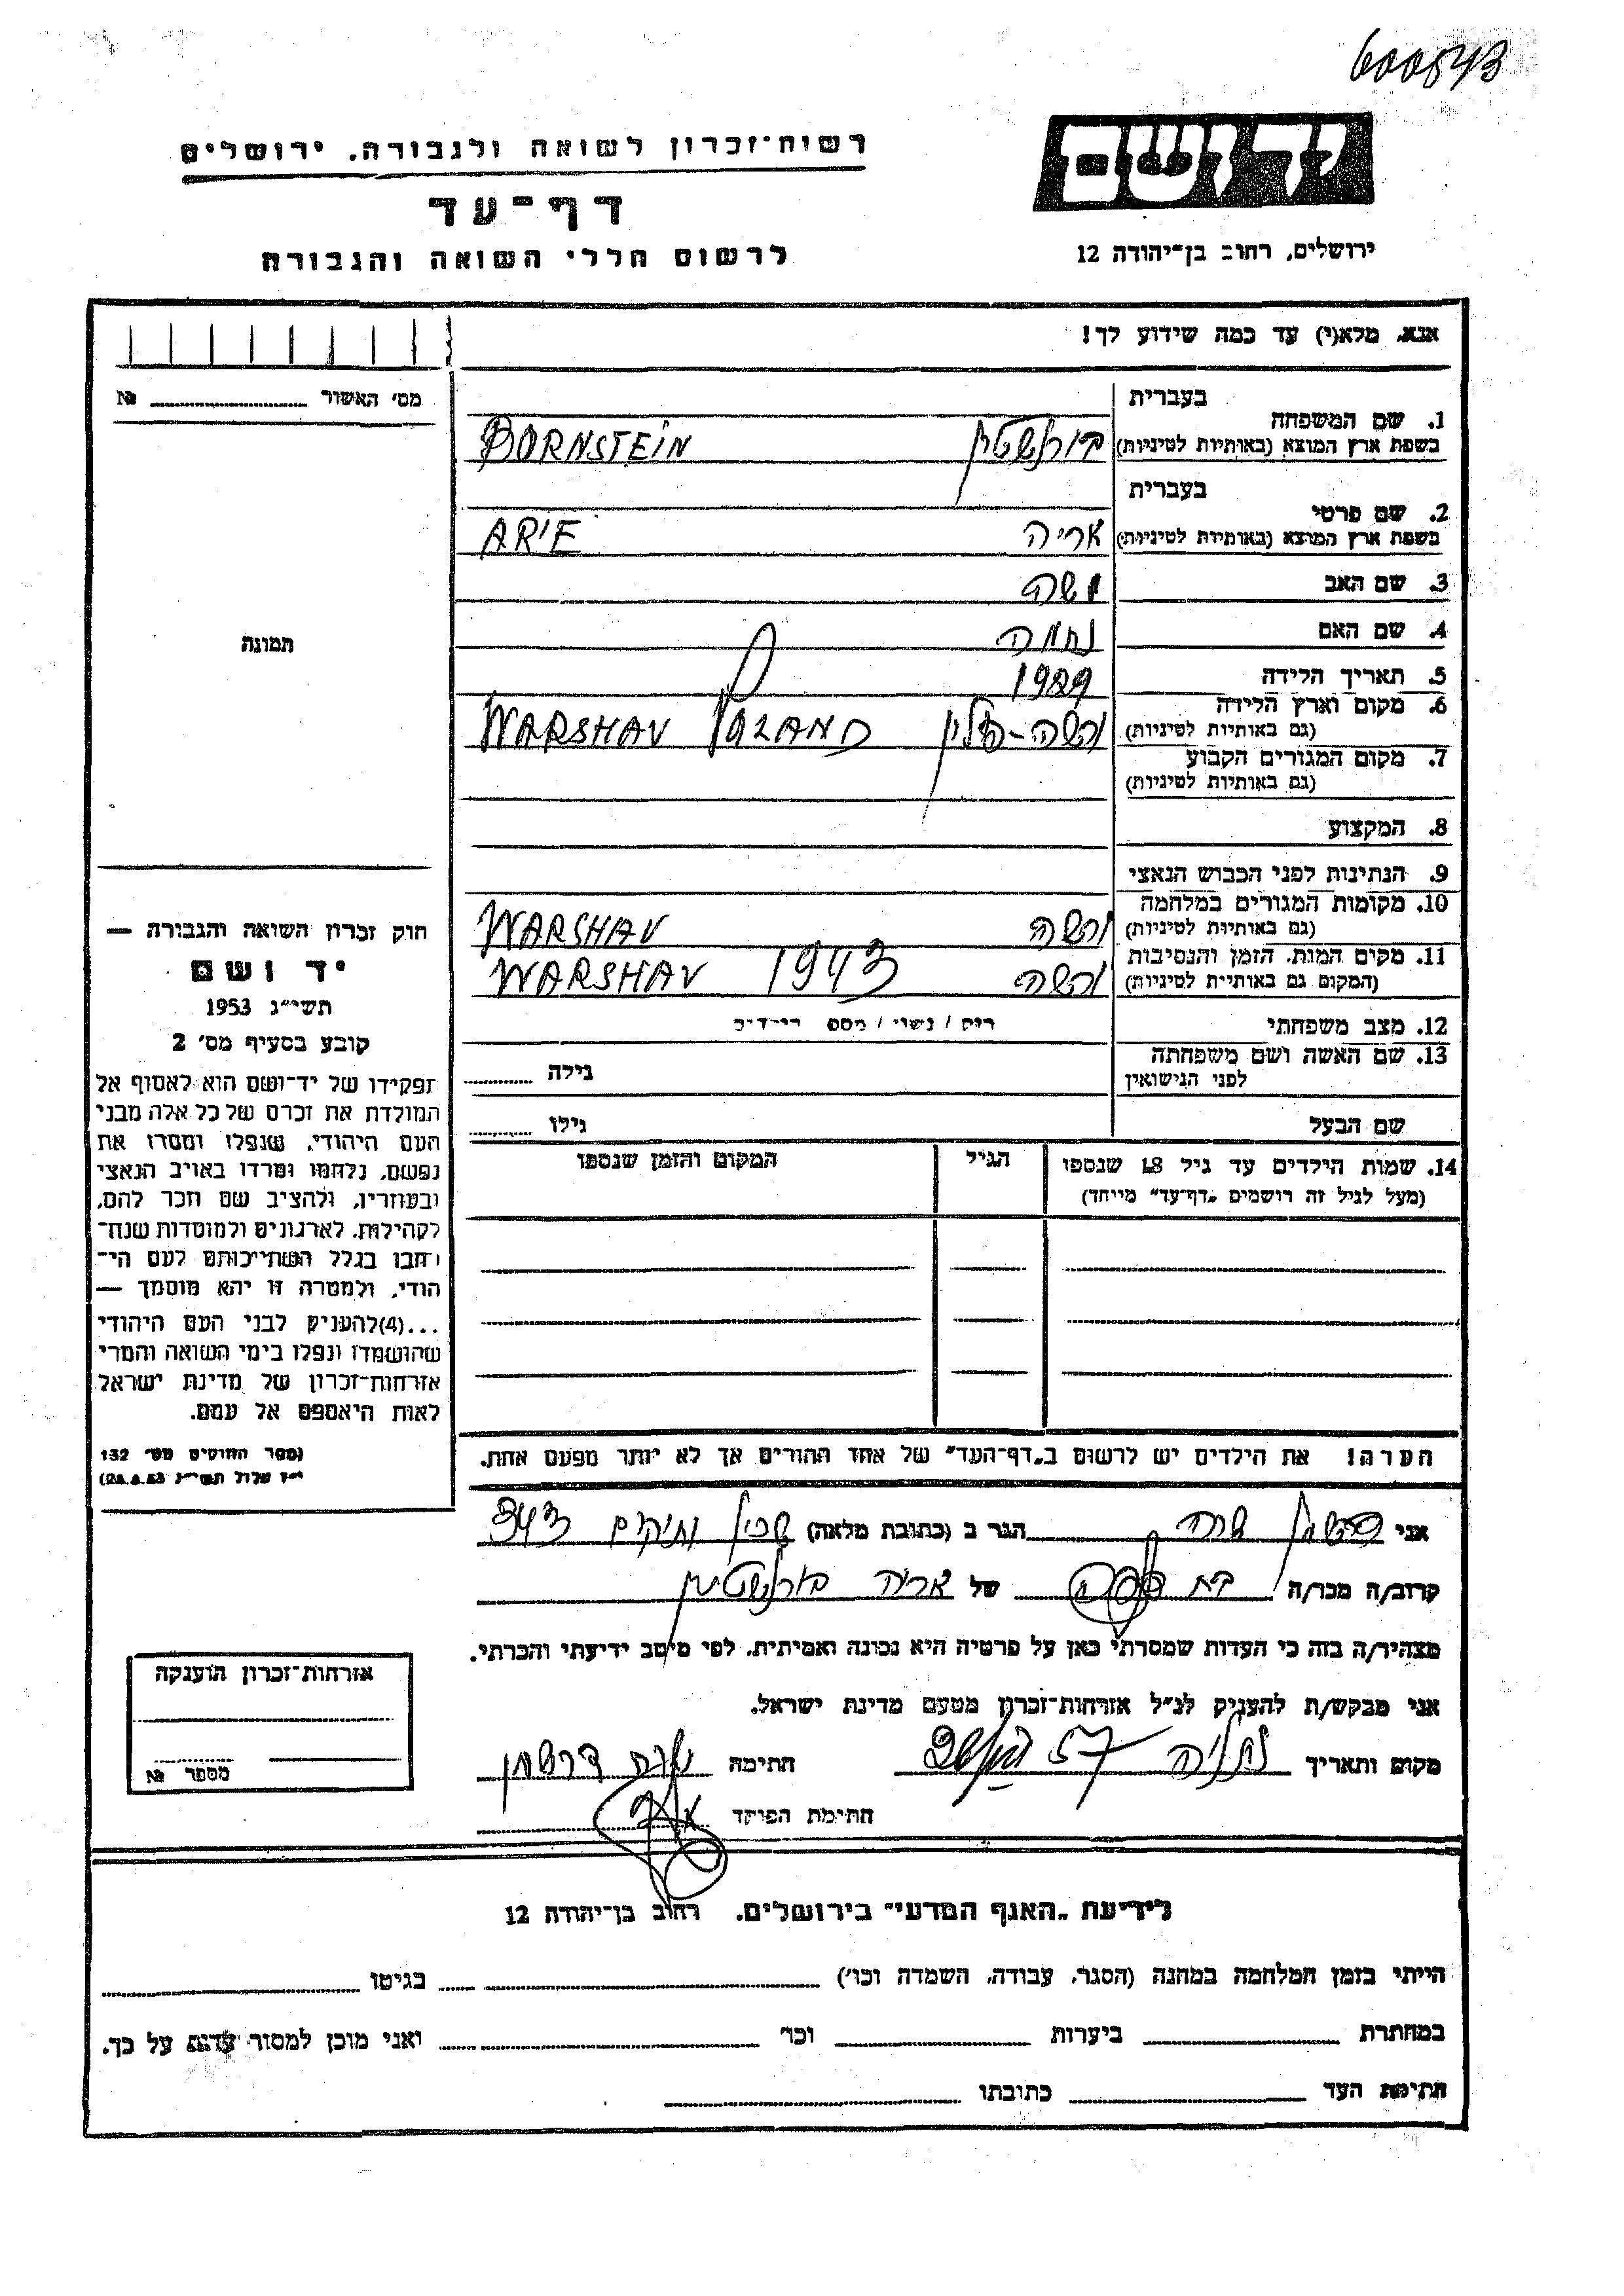 600843
יד ושם
ירושלים, רחוב בן־יהודה 12
רשות־זכרון לשואה ולגבורה. ירושלים
דף־עד
לרשום חללי השואה והגבורה
אנא, מלא(י) עד כמה שידוע לך!
מס' האשור № 
תמונה
חוק זכרון השואה והגבורה —
יד ושם
תשי״ג 1953
קובע בסעיף מס' 2
תפקידו של יד־ושם הוא לאסוף אל
המולדת את זכרם של כל אלה מבני
העם היהודי, שנפלו ומסרו את
נפשם, נלחמו ומרדו באויב הנאצי
ובעוזריו, ולהציב שם וזכר להם,
לקהילות, לארגונים ולמוסדות שנח־
רבו בגלל השתייכותם לעם הי־
הודי, ולמטרה זו יהא מוסמך —
...(4)להעניק לבני העם היהודי
שהושמדו ונפלו בימי השואה והמרי
אזרחות־זכרון של מדינת ישראל
לאות היאספם אל עמם.
(ספר החוקים מס' 132
י״ז אלול תשי״ג 28.8.53)
1. שם המשפחה בעברית
בשפת ארץ המוצא (באותיות לטיניות) בורנשטיין BORNSTEIN
2. שם פרטי בעברית
בשפת ארץ המוצא (באותיות לטיניות) אריה ARIE
3. שם האב משה
4. שם האם נחמה
5. תאריך הלידה 1929
6. מקום וארץ הלידה
(גם באותיות לטיניות) ורשה-פולין WARSHAV POLAND
7. מקום המגורים הקבוע
(גם באותיות לטיניות)
8. המקצוע
9. הנתינות לפני הכבוש הנאצי
10. מקומות המגורים במלחמה
(גם באותיות לטיניות) ורשה WARSHAV
11. מקום המות, הזמן והנסיבות
(המקום גם באותיות לטיניות) ורשה WARSHAV 1943
12. מצב משפחתי רוק / נשוי / מספר ילדים
13. שם האשה ושם משפחתה
לפני הנישואין גילה
שם הבעל גילו
14. שמות הילדים עד גיל 18 שנספו הגיל המקום והזמן שנספו
(מעל לגיל זה רושמים „דף־עד״ מיוחד)
הערה! את הילדים יש לרשום ב„דף־העד״ של אחד ההורים אך לא יותר מפעם אחת.
אני שרה הגר ב (כתובת מלאה) שכון ותיקים 343
קרוב/ה מכר/ה בת של אריה בורנשטיין
מצהיר/ה בזה כי העדות שמסרתי כאן על פרטיה היא נכונה ואמיתית, לפי מיטב ידיעתי והכרתי.
אני מבקש/ת להעניק לנ״ל אזרחות־זכרון מטעם מדינת ישראל.
מקום ותאריך נתניה 57 חתימה שרה
חתימת הפוקד
אזרחות־זכרון הוענקה
מספר №
לידיעת „האגף המדעי״ בירושלים. רחוב בן־יהודה 12
הייתי בזמן המלחמה במחנה (הסגר, עבודה, השמדה וכו') בגיטו
במחתרת ביערות וכו' ואני מוכן למסור עדות על כך.
חתימת העד כתובתו